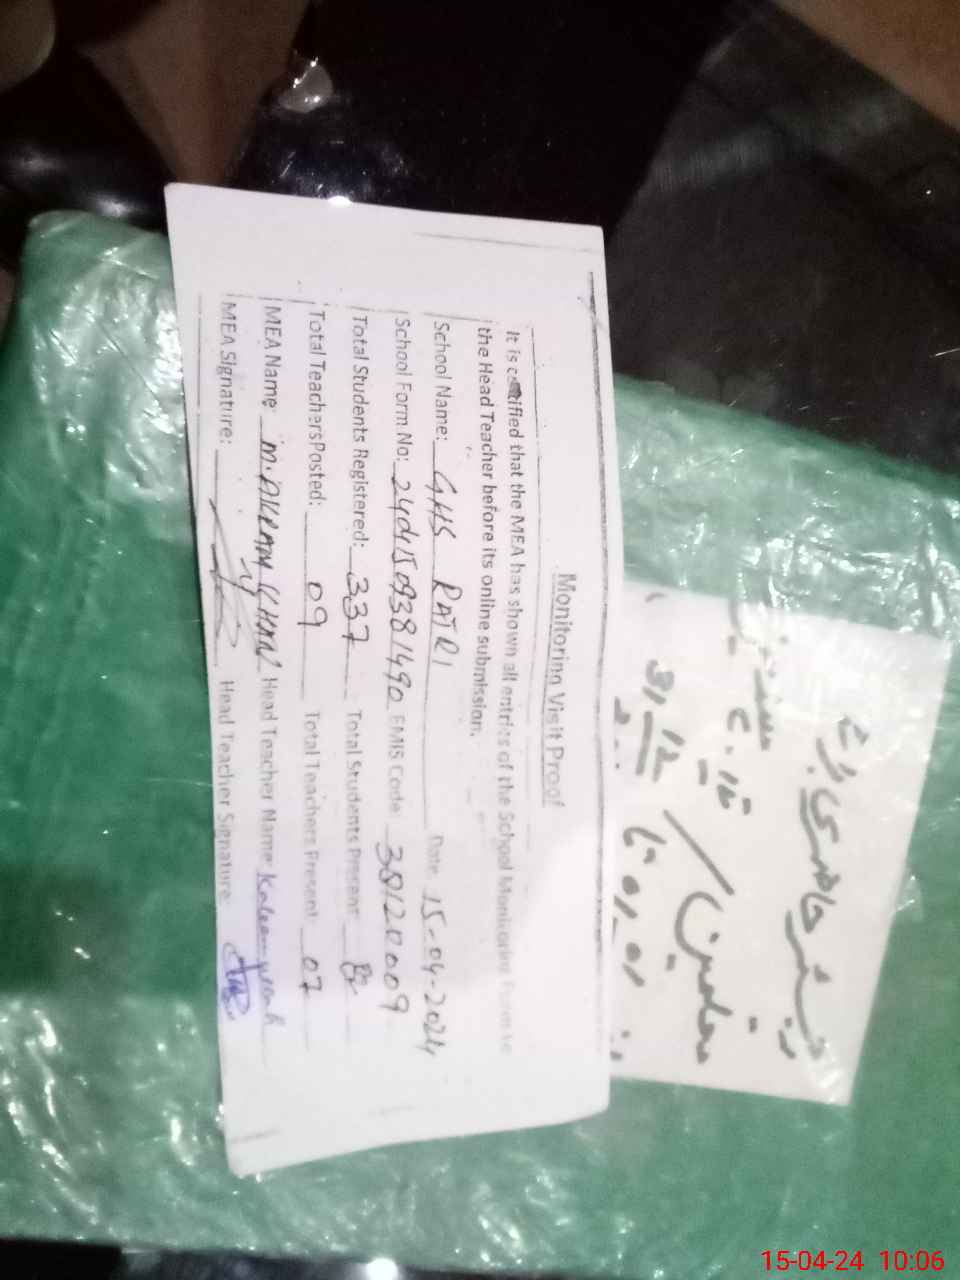 Monitoring Visit Proof
It is certified that the MEA has shown all entries of the School Monitoring Form to
the Head Teacher before its online submission.
School Name: GHS RATRI Date 15-04-2024
School Form No: EMIS Code: 38120009
Total Students Registered: 337 Total Students Present
Total Teachers Posted: 09 Total Teachers Present: 07
MEA Name M. AKRAM KHAN Head Teacher Name: Kaleem ullah
MEA Signature: Head Teacher Signature:
رجسٹر حاضری برائے
معلمین /
15-04-24 10:06